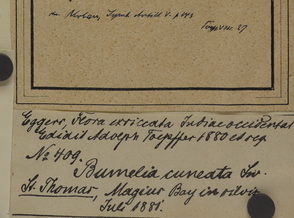 in Urban, Symb. Antill. V. p. 
Eggers, Flora exsiccata Indiae occidental
Edidit Adolph Toepffer 1880 et seq.
No 409.
Bumelia cuneata Sw.
St. Thomas, Magius Bay in silvis
Juli 1881.